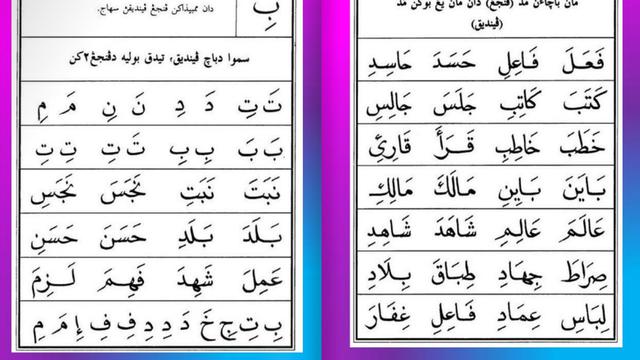 بِ
دان ممبيذاكن ڤنجڠ ڤينديقن سهاج.
سموا دباچ ڤينديق، تيدق بوليه دڤنجڠ٢كن
تَ تِ دَ دِ نَ نِ مَ مِ
بَ بَ بِ بِ تَ تِ تِ تِ
نَبَتَ نَبَتِ نَجَسَ نَجَسِ
بَلَدَ بَلَدِ حَسَنَ حَسَنِ
عَمِلَ شَهِدَ فَهِمَ لَزِمَ
بِ تِ جِ خَ دَ دِ دِ فِ فِ إِ مَ مِ
مان باچاءن مد (ڤنجڠ) دان مان يڠ بوكن مد
(ڤينديق)
فَعَلَ فَاعِلِ حَسَدَ حَاسِدِ
كَتَبَ كَاتِبِ جَلَسَ جَالِسِ
خَطَبَ خَاطِبِ قَرَأَ قَارِئِ
بَايَنَ بَايِنِ مَالَكَ مَالِكِ
عَالَمَ عَالِمِ شَاهَدَ شَاهِدِ
صِرَاطَ جِهَادِ طِبَاقَ بِلَادِ
لِبَاسِ عِمَادِ فَاعِلِ غِفَارَ